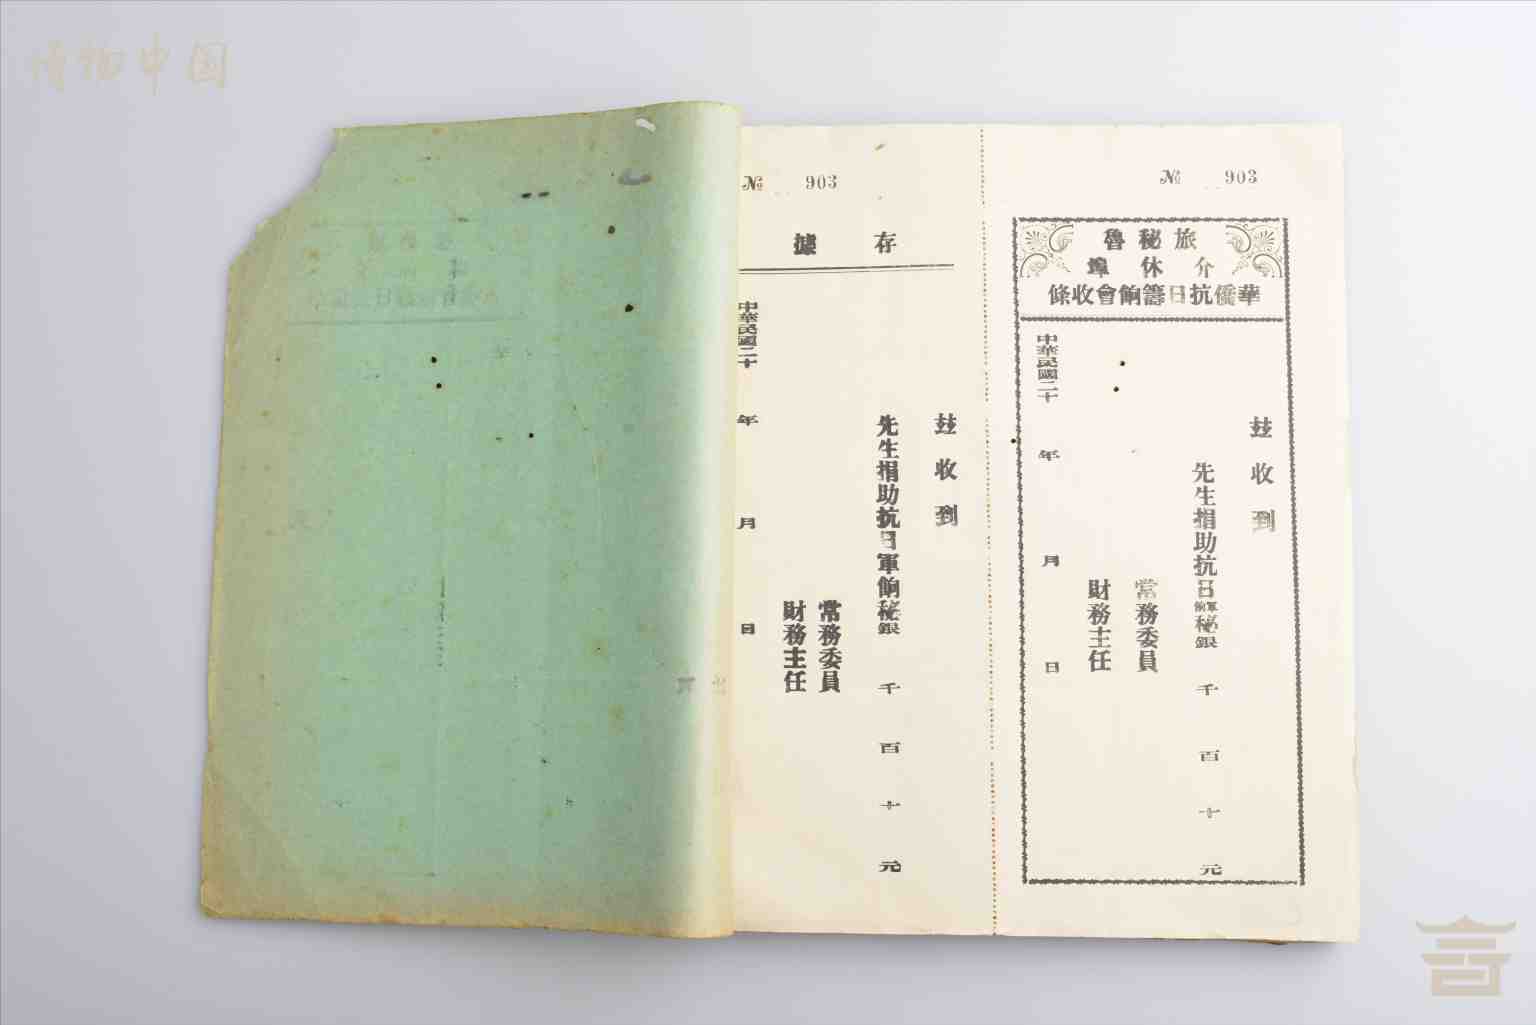 博物中国
№ 903
旅秘魯
介休埠
華僑抗日籌餉會收條
玆收到
先生捐助抗日軍餉秘銀 千 百 十 元
常務委員
財務主任
中華民國二十 年 月 日
№ 903
存據
玆收到
先生捐助抗日軍餉秘銀 千 百 十 元
常務委員
財務主任
中華民國二十 年 月 日